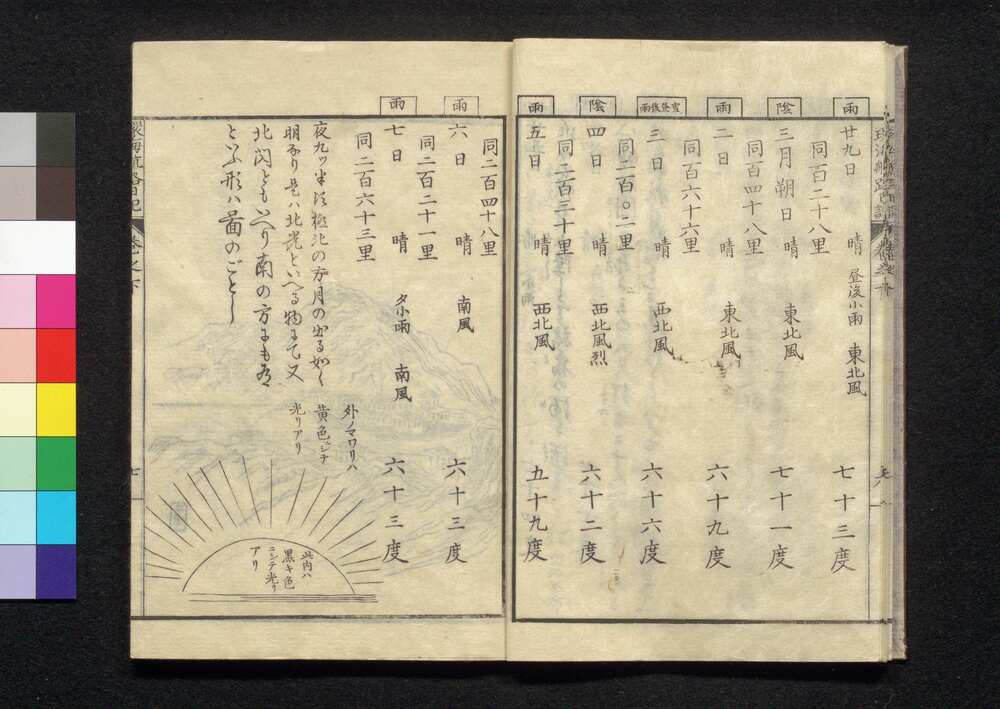 雨
陰
雨
雪昼後雨
陰
雨
廿九日 晴 昼後小雨 東北風 七十三度
同百二十八里
三月朔日 晴 東北風 七十一度
同百四十八里
二日 晴 東北風 六十九度
同百六十六里
三日 晴 西北風 六十六度
同二百〇二里
四日 晴 西北風烈 六十二度
同二百三十里
五日 晴 西北風 五十九度
雨
雨
同二百四十八里
六日 晴 南風 六十三度
同二百二十一里
七日 晴 夕小雨 南風 六十三度
同二百六十三里
夜九ッ半頃極北の方月の出る如く
明るり是ハ北光といへる物にて又
北閃ともいへり南の方にも有
といふ形ハ図のごとし
外ノマワリハ
黄色ニシテ
光リアリ
此内ハ
黒キ色
ニシテ光リ
アリ